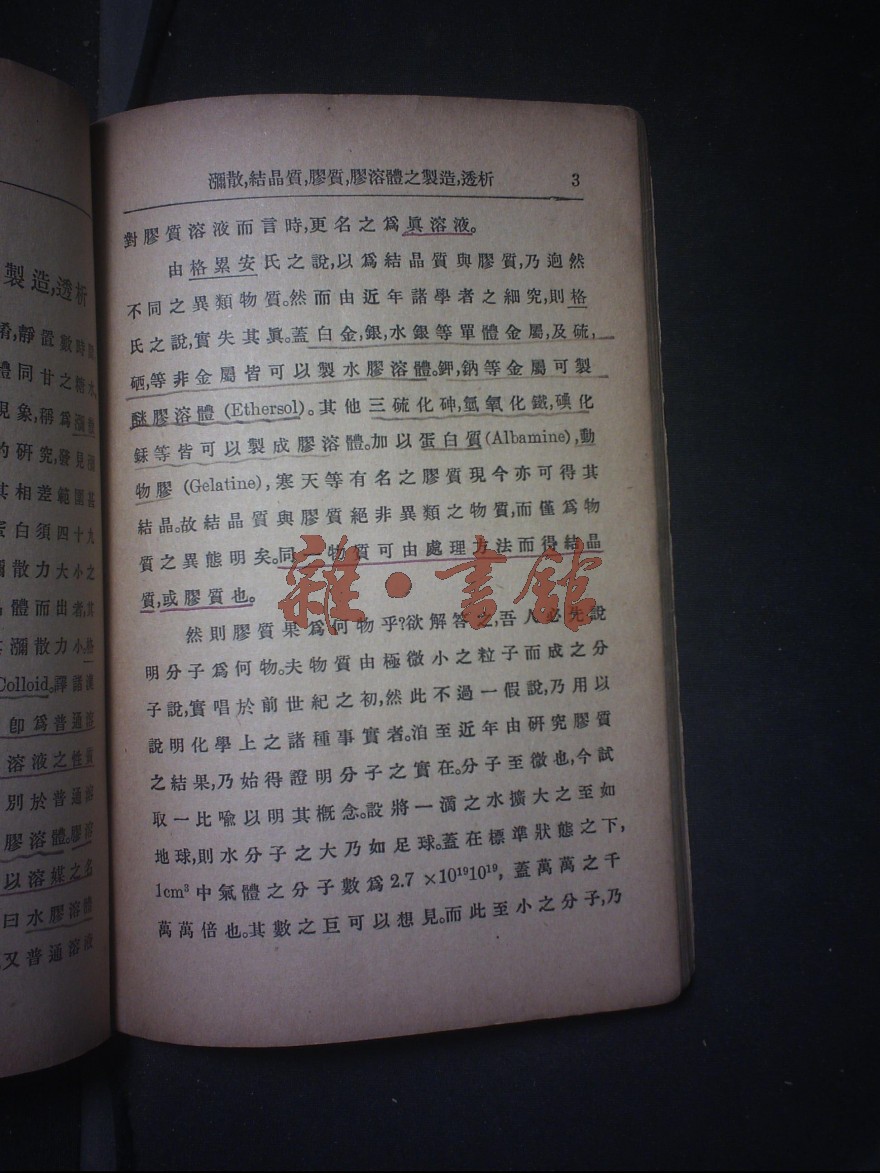 製造,透析
體同甘之糖水,
現象,稱爲瀰散
的研究,發見瀰
其相差範圍甚
蛋白須四十九
瀰散力大小之
體而出者,其
其瀰散力小,格
Colloid,譯語漢
卽爲普通溶
溶液之性質
別於普通溶
膠溶體。膠溶
以溶媒之名
曰水膠溶體
又普通溶液
瀰散,結晶質,膠質,膠溶體之製造,透析 3
對膠質溶液而言時,更名之爲眞溶液。
由格累安氏之說,以爲結晶質與膠質,乃逈然
不同之異類物質。然而由近年諸學者之細究,則格
氏之說,實失其眞。蓋白金,銀,水銀等單體金屬,及硫,
硒,等非金屬皆可以製水膠溶體。鉀,鈉等金屬可製
醚膠溶體 (Ethersol)。其他三硫化砷,氫氧化鐵,碘化
銾等皆可以製成膠溶體。加以蛋白質(Albamine),動
物膠 (Gelatine),寒天等有名之膠質現今亦可得其
結晶。故結晶質與膠質絕非異類之物質,而僅爲物
質之異態明矣。同一物質可由處理方法而得結晶
質,或膠質也。
然則膠質果爲何物乎?欲解答之,吾人必先說
明分子爲何物。夫物質由極微小之粒子而成之分
子說,實唱於前世紀之初,然此不過一假說,乃用以
說明化學上之諸種事實者。洎至近年由硏究膠質
之結果,乃始得證明分子之實在。分子至微也,今試
取一比喩以明其槪念。設將一滴之水擴大之至如
地球,則水分子之大乃如足球。蓋在標準狀態之下,
1cm³中氣體之分子數爲2.7 ×10¹⁹10¹⁹, 蓋萬萬之千
萬萬倍也。其數之巨可以想見。而此至小之分子,乃
雜·書館